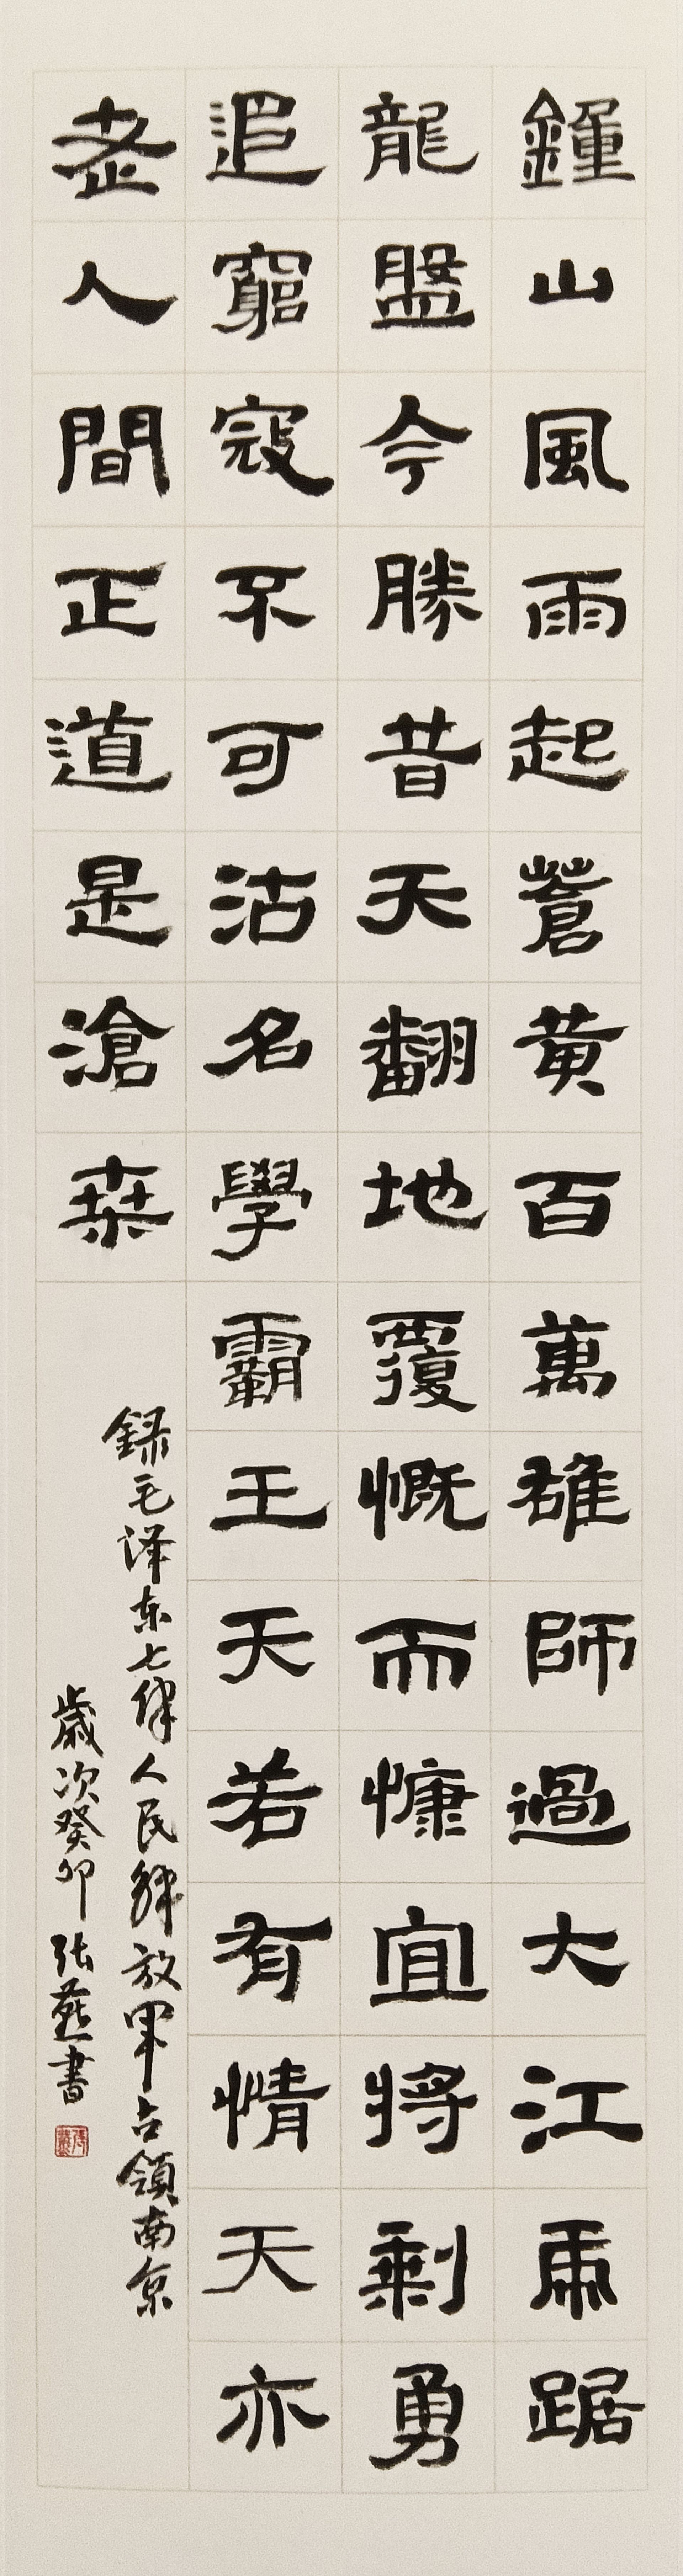 鐘山風雨起蒼黃百萬雄師過大江虎踞
龍盤今勝昔天翻地覆慨而慷宜將剩勇
追窮寇不可沽名學霸王天若有情天亦
老人間正道是滄桑
録毛泽东七律人民解放軍占領南京
歲次癸卯張燕書